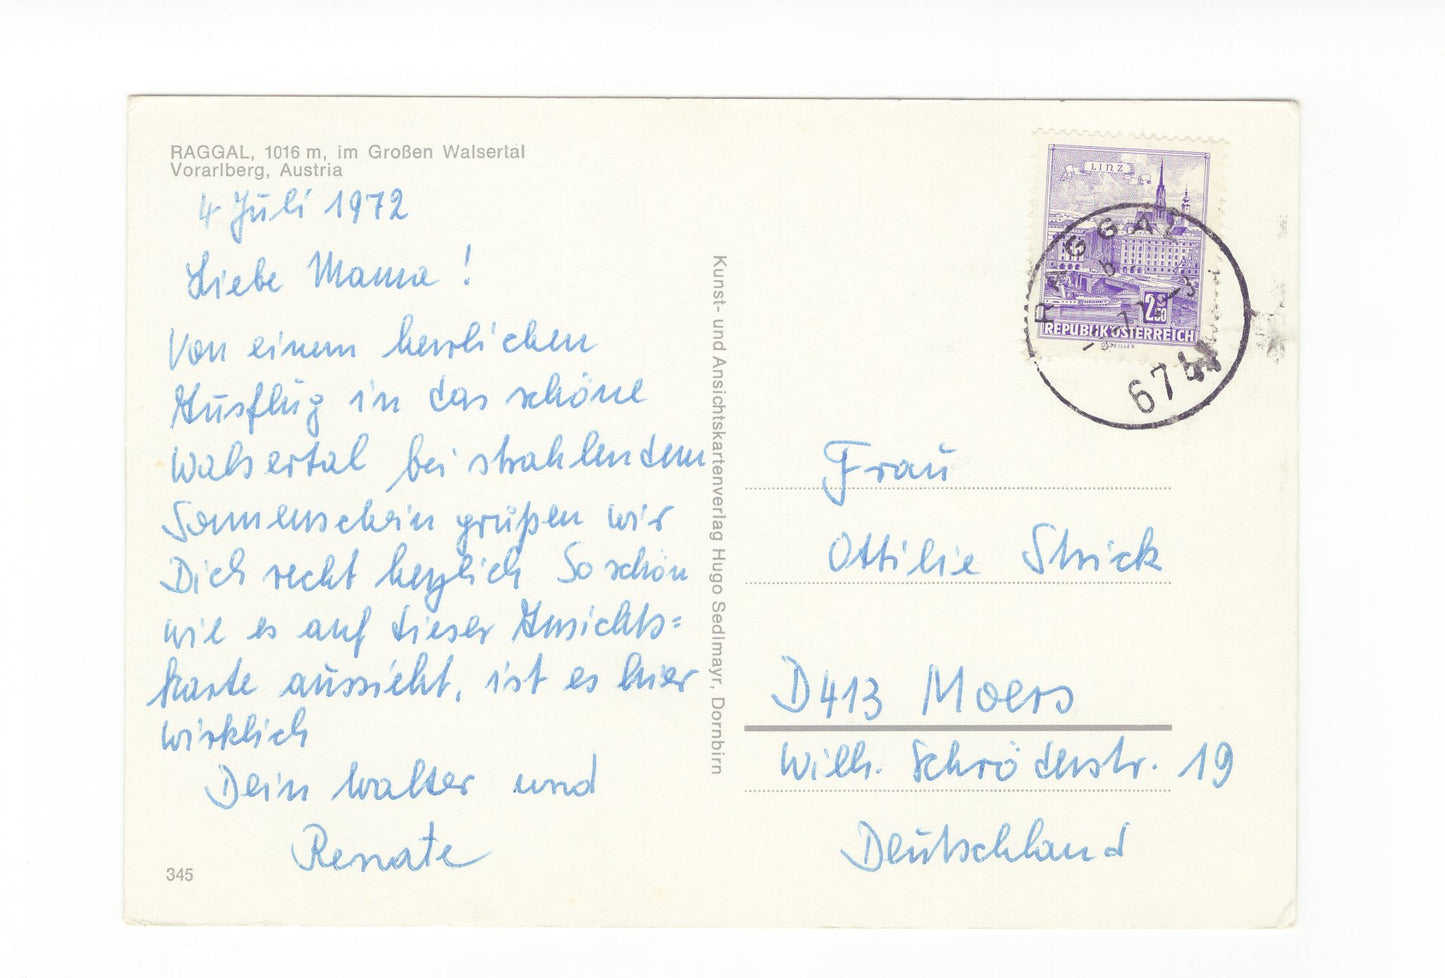 RAGGAL, 1016 m, im Großen Walsertal
Vorarlberg, Austria
4 Juli 1972
Liebe Mama!
Von einem herrlichen
Ausflug in das schöne
Walsertal bei strahlendem
Sonnenschein grüßen wir
Dich recht herzlich So schön
wie es auf dieser Ansichts=
karte aussieht, ist es hier
wirklich
Dein Walter und
Renate
345
Kunst- und Ansichtskartenverlag Hugo Sedlmayr, Dornbirn
LINZ
2.50
REPUBLIK ÖSTERREICH
RAGGAL
b
674
Frau
Ottilie Strick
D413 Moers
Wilh. Schröderstr. 19
Deutschland